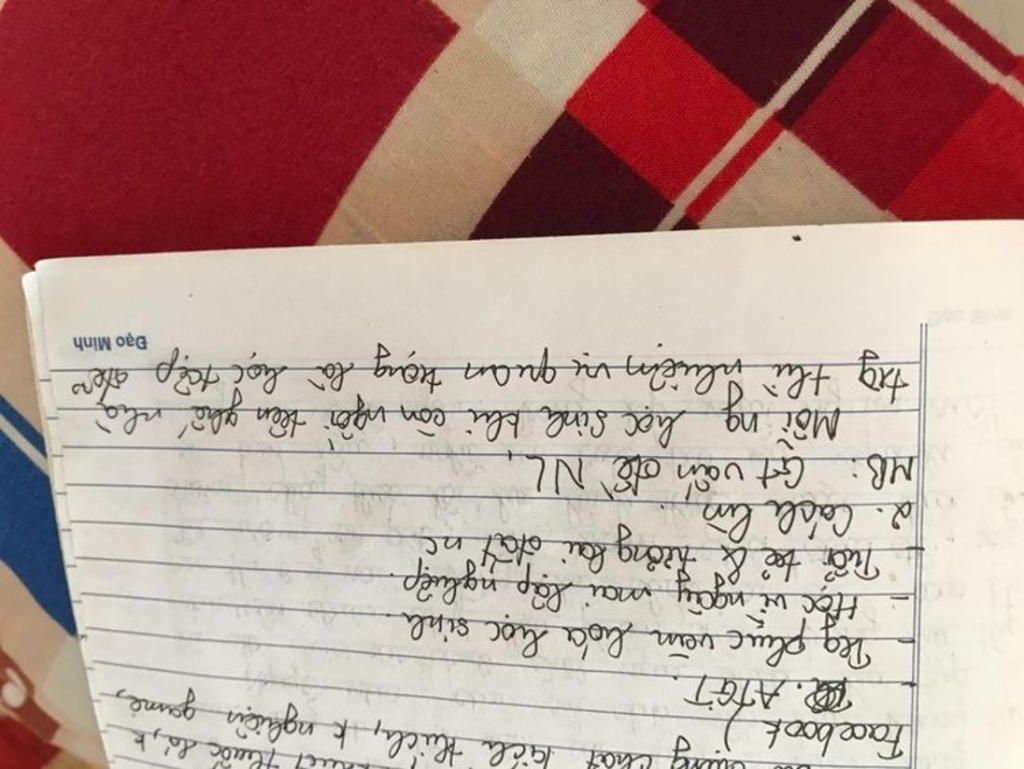 thuốc lá, k
dụng chất kích thích, k nghiện game,
Facebook)
- ATGT.
- Trg phục văn hóa học sinh.
- Học vì ngày mai lập nghiệp.
- Tuổi trẻ & tương lai đất nc
2. Cách làm.
MB: Gt vấn đề NL,
Mỗi ng học sinh khi còn ngồi trên ghế nhà
trg thì nhiệm vụ quan trọng là học tập để
Đạo Minh